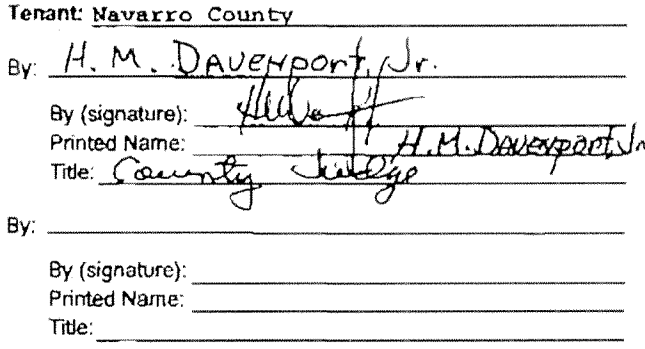 Tenant: Navarro County
By: H. M. Davenport, Jr.
By (signature):
Printed Name: H.M. Davenport, Jr
Title: County Judge
By:
By (signature):
Printed Name:
Title: